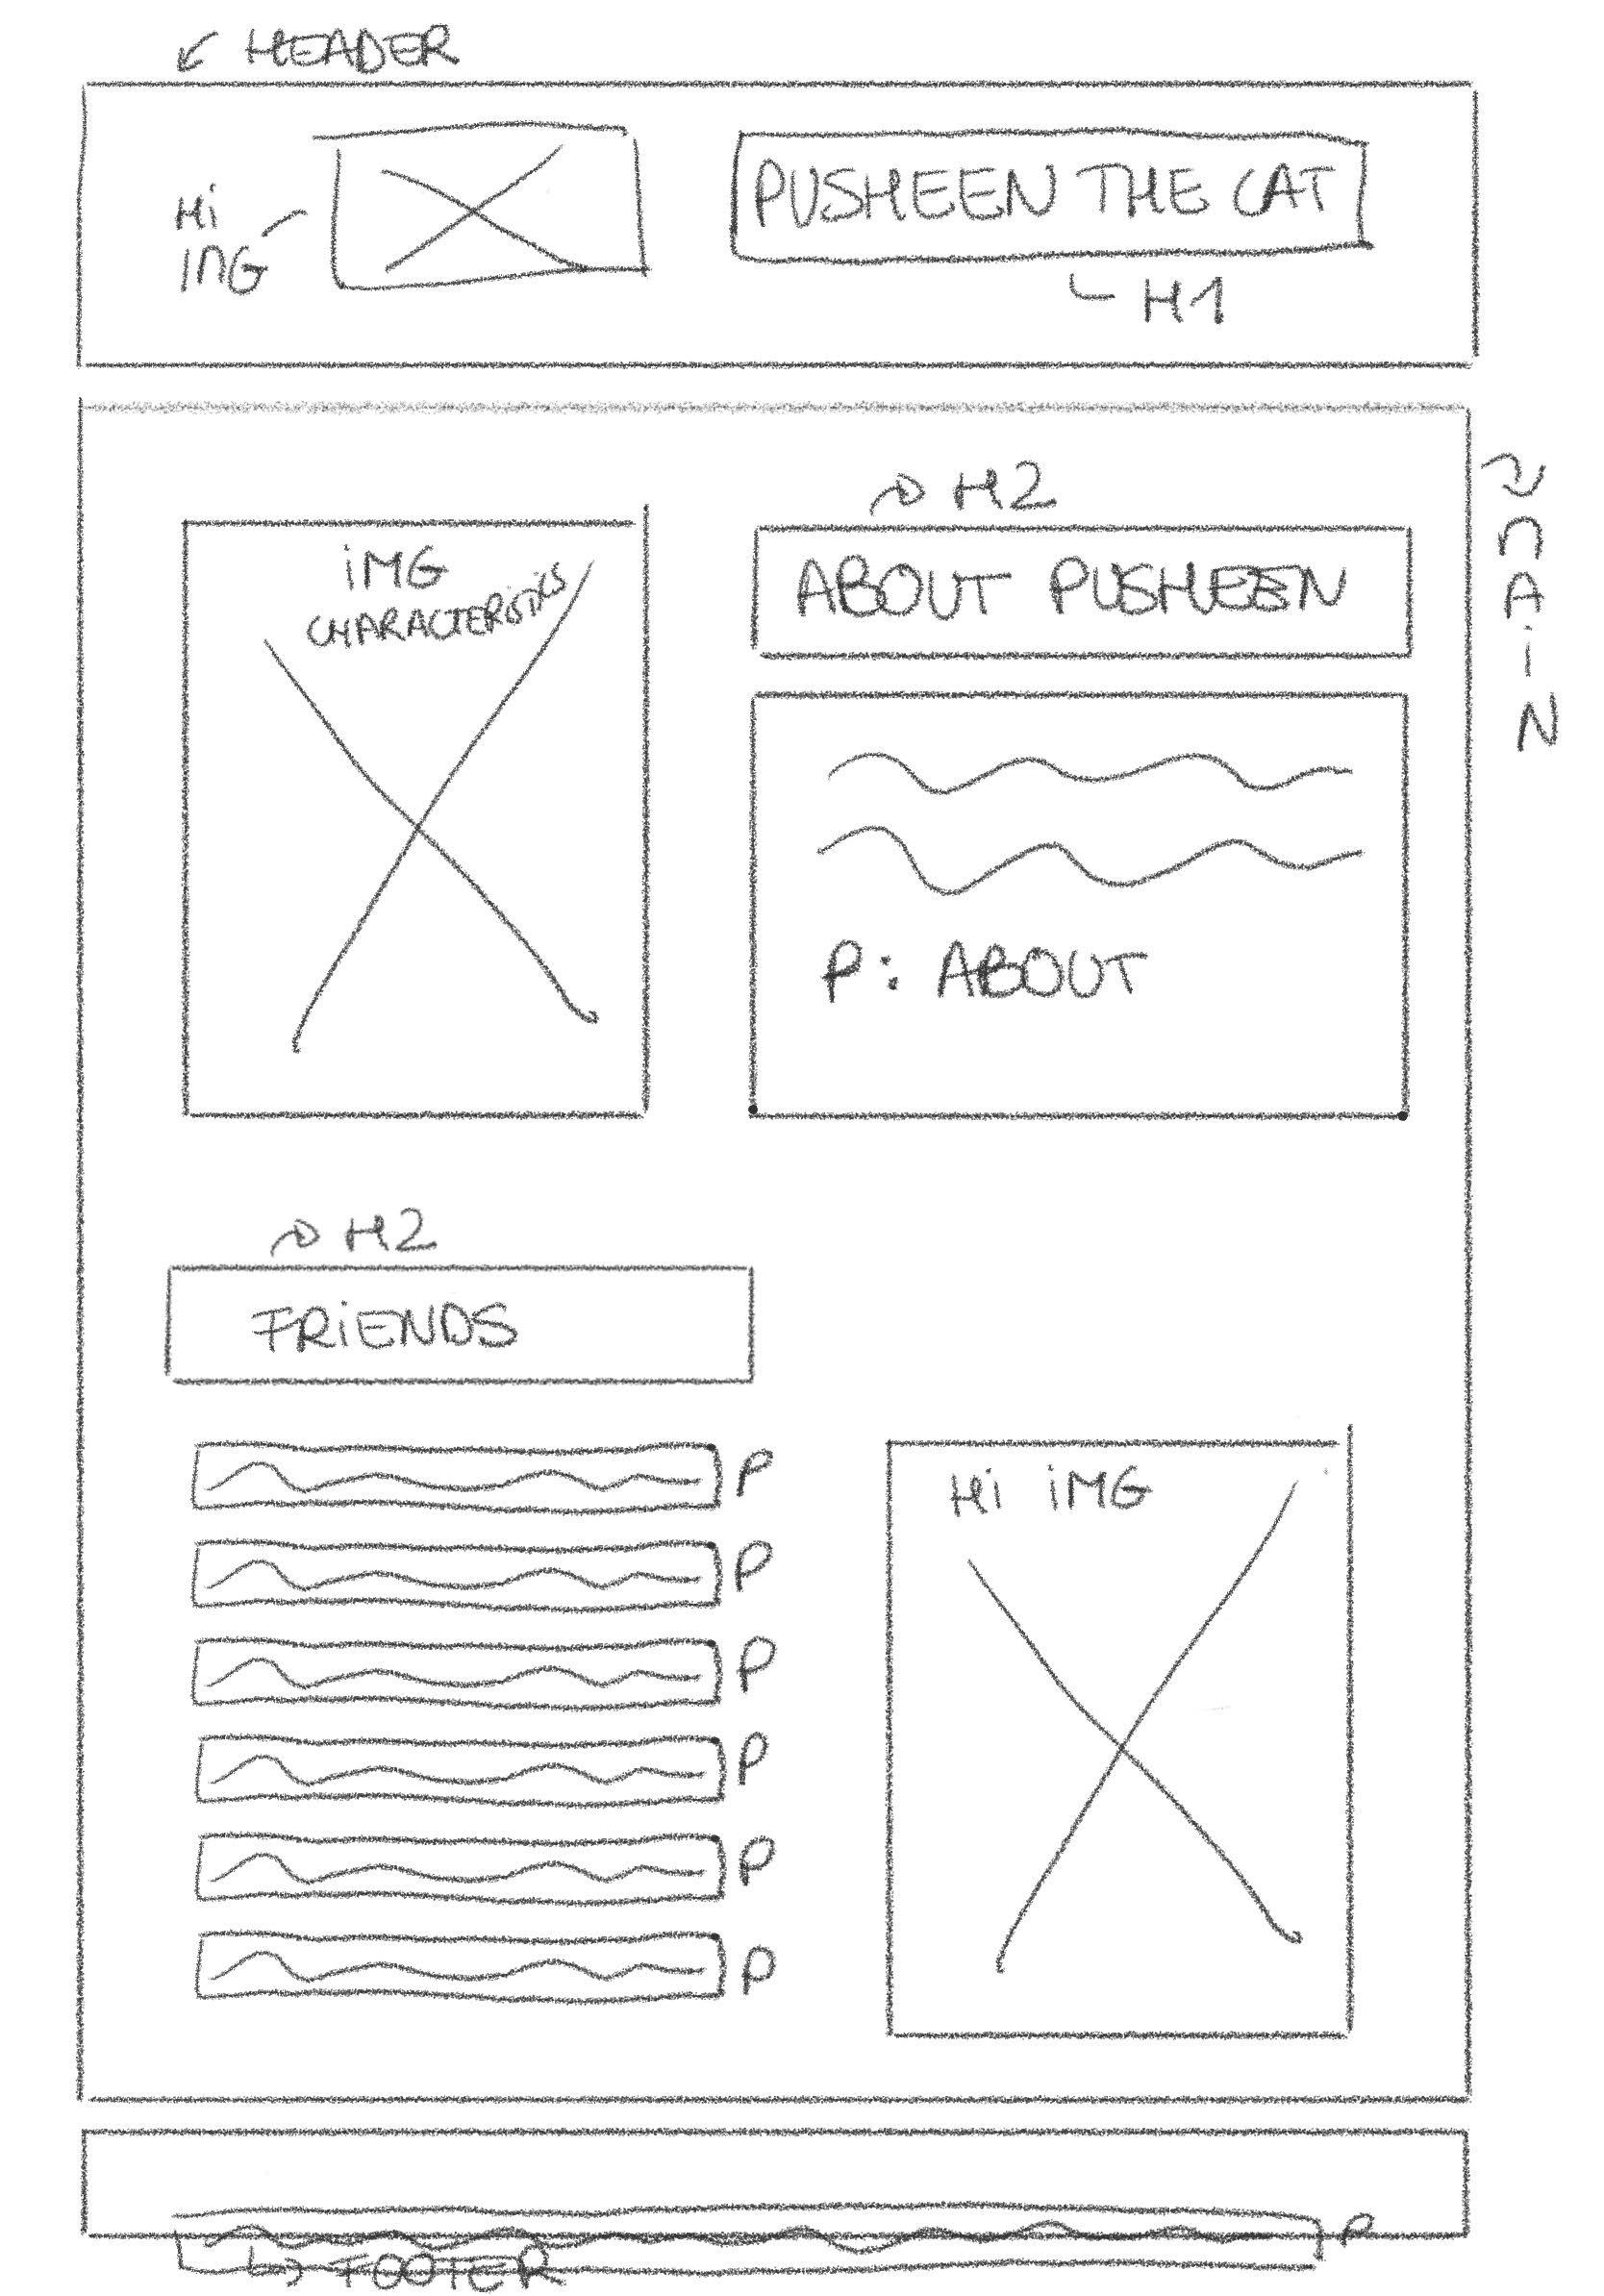 HEADER
Hi
IMG
PUSHEEN THE CAT
H1
MAiN
H2
iMG
CHARACTERiSTiCS
ABOUT PUSHEEN
P: ABOUT
H2
FRiENDS
P
P
P
P
P
P
Hi iMG
P
FOOTER